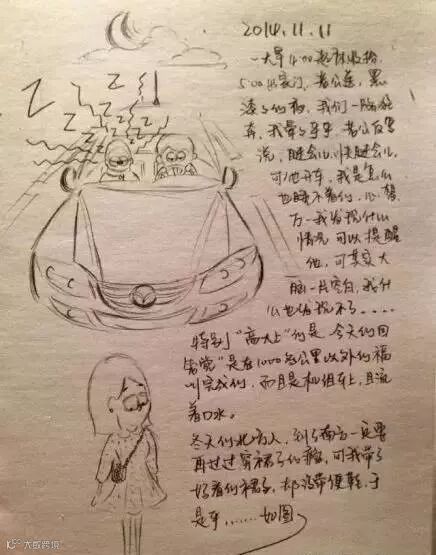 Z Z Z Z Z Z
2014.11.11
一大早4:00起床收拾
5:00出家门，老公连，黑
漆々的夜，我们一路狂
奔，我晕々乎乎，老公反复
说，睡会儿，快睡会儿，
可他开车，我是怎么
也睡不着的，心想
万一我发现什么
情况可以提醒
他，可其实大
脑一片空白，我什
么也发现不了....
特别“高大上”的是今天的回
笼觉”是在1000多公里以外的福
州完成的，而且是机组车上，且流
着口水。
冬天的北方人，到了南方一定要
再过过穿裙子的瘾，可我带了
好看的裙子，却没带便鞋，于
是乎......如图
大数跨境